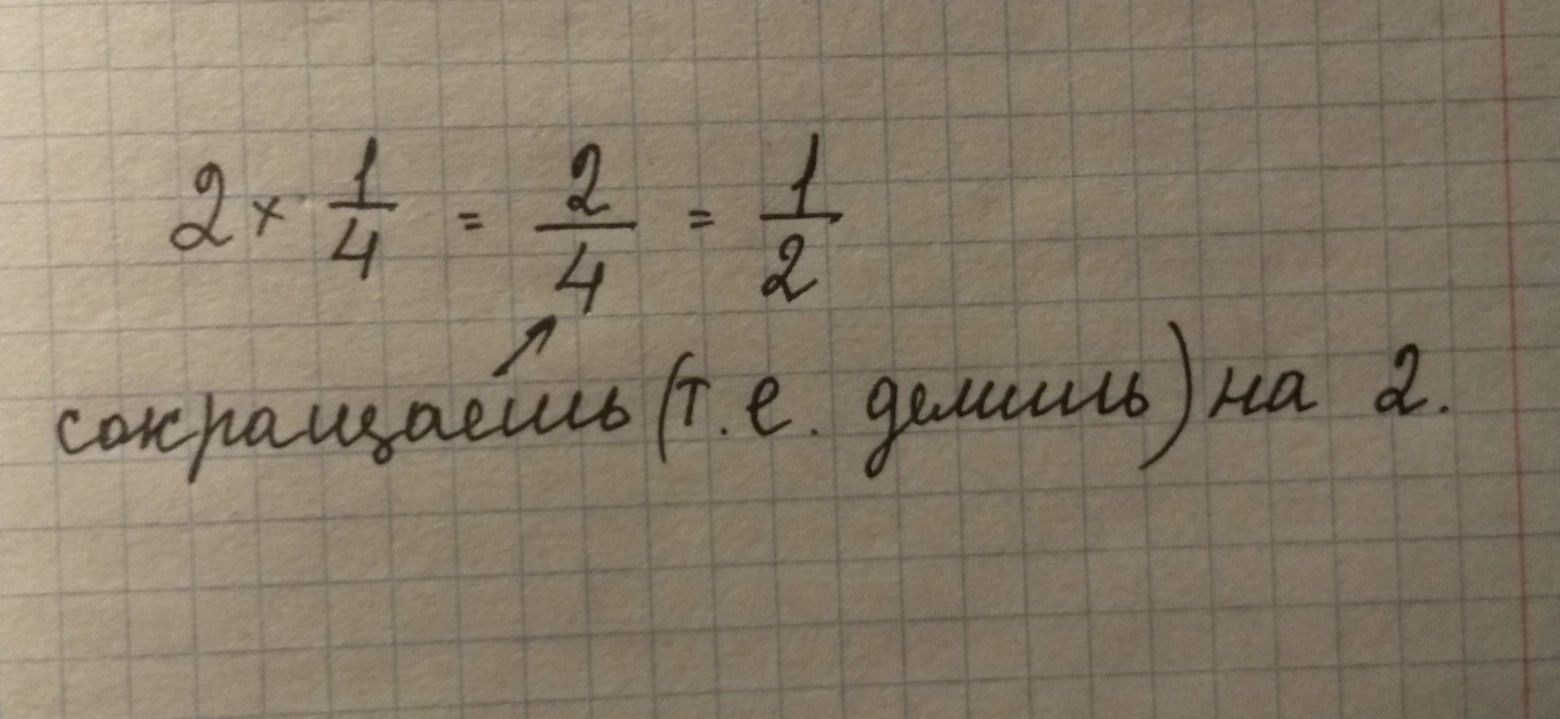 2 × 1/4 = 2/4 = 1/2
сокращаешь (т.е. делишь) на 2.